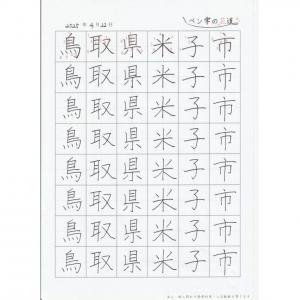 2025年4月22日
ペン字の花道
鳥取県米子市
鳥取県米子市
鳥取県米子市
鳥取県米子市
鳥取県米子市
鳥取県米子市
鳥取県米子市
鳥取県米子市